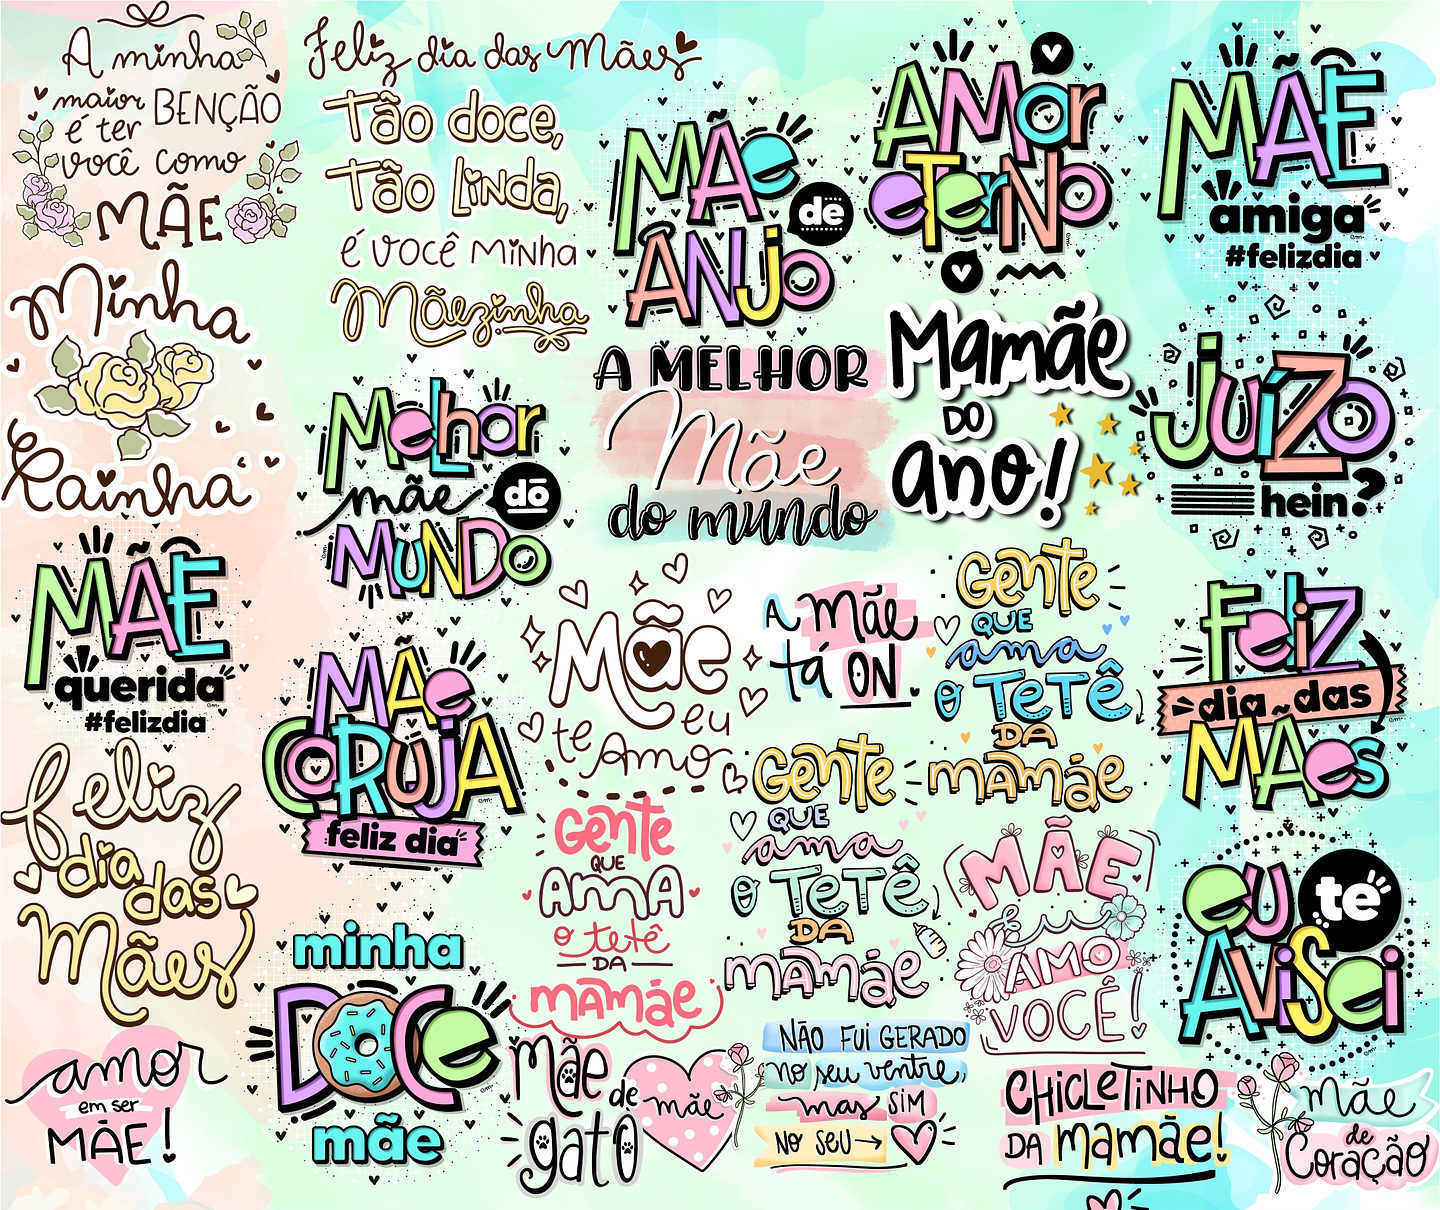 A minha
maior BENÇÃO
é ter
você como
MÃE
Feliz dia das Mães
Tão doce,
Tão LiNDa,
é você Minha
Mãezinha
MÃe
de
ÂNJo
AMor
eterNo
MÃE
amiga
#felizdia
Minha
Rainha
Melhor
mãe do
MUNDo
A MELHOR
Mãe
do mundo
Mamãe
DO
ano!
JuíZo,
hein?
MÃE
querida
#felizdia
MÃe
CORUJA
feliz dia
Mãe
eu
te Amo
A Mãe
tá ON
Gente
QUE
ama
o TeTê
DA
mamãe
FeliZ
dia das
MÃes
feliz
dia
das
Mães
Gente
QUE
AMA
o tetê
DA
mamãe
Gente
QUE
ama
o TeTê
DA
mamãe
MÃE
Eu
AMO
VOCÊ!
eu te
AviSei
minha
DOCe
mãe
amor
em ser
MÃE!
Mãe
de
gato
mãe
NÃO FUI GERADO
no seu ventre,
mas SIM
NO SEU
CHICLeTiNHO
DA mamãe!
mãe
de
Coração